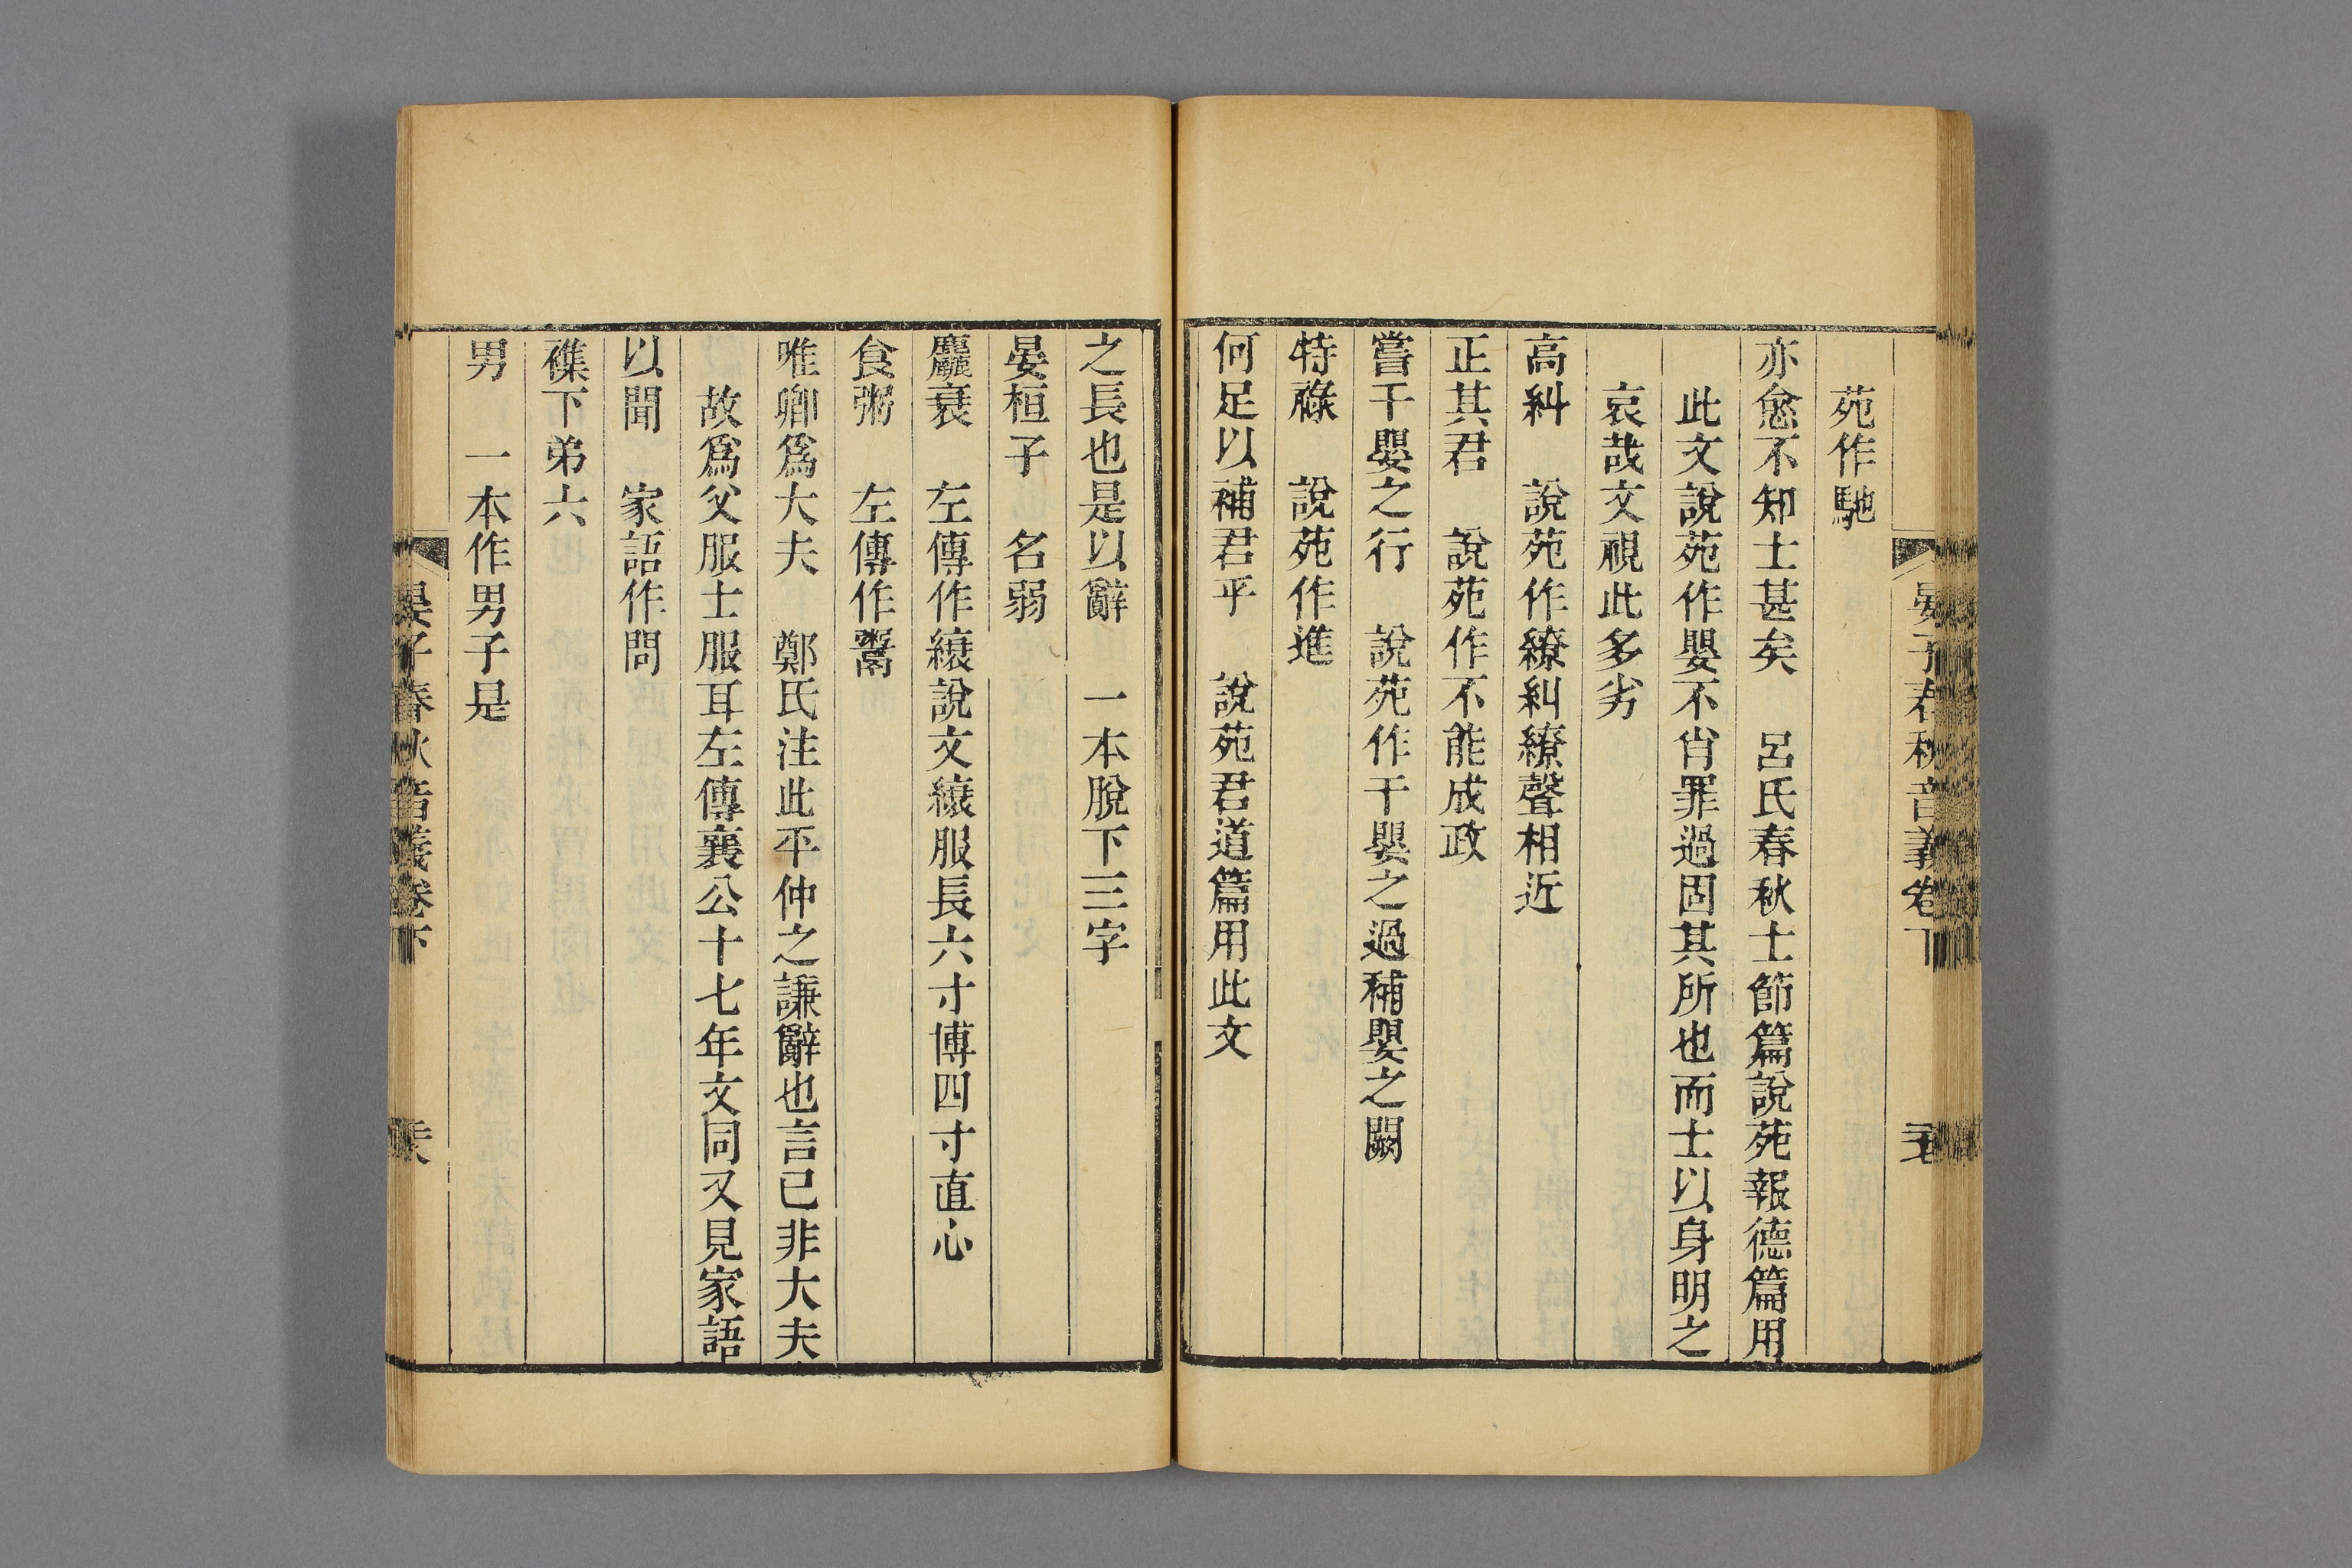 晏子春秋音義卷下
苑作馳
亦愈不知士甚矣　呂氏春秋士節篇說苑報德篇用
此文說苑作嬰不肖罪過固其所也而士以身明之
哀哉文視此多劣
高糾　說苑作繚糾繚聲相近
正其君　說苑作不能成政
嘗干嬰之行　說苑作干嬰之過補嬰之闕
特祿　說苑作進
何足以補君乎　說苑君道篇用此文
之長也是以辭　一本脫下三字
晏桓子　名弱
麤衰　左傳作縗說文縗服長六寸博四寸直心
食粥　左傳作鬻
唯卿爲大夫　鄭氏注此平仲之謙辭也言己非大夫
故爲父服士服耳左傳襄公十七年文同又見家語
以聞　家語作問
襍下弟六
男　一本作男子是
晏子春秋音義卷下